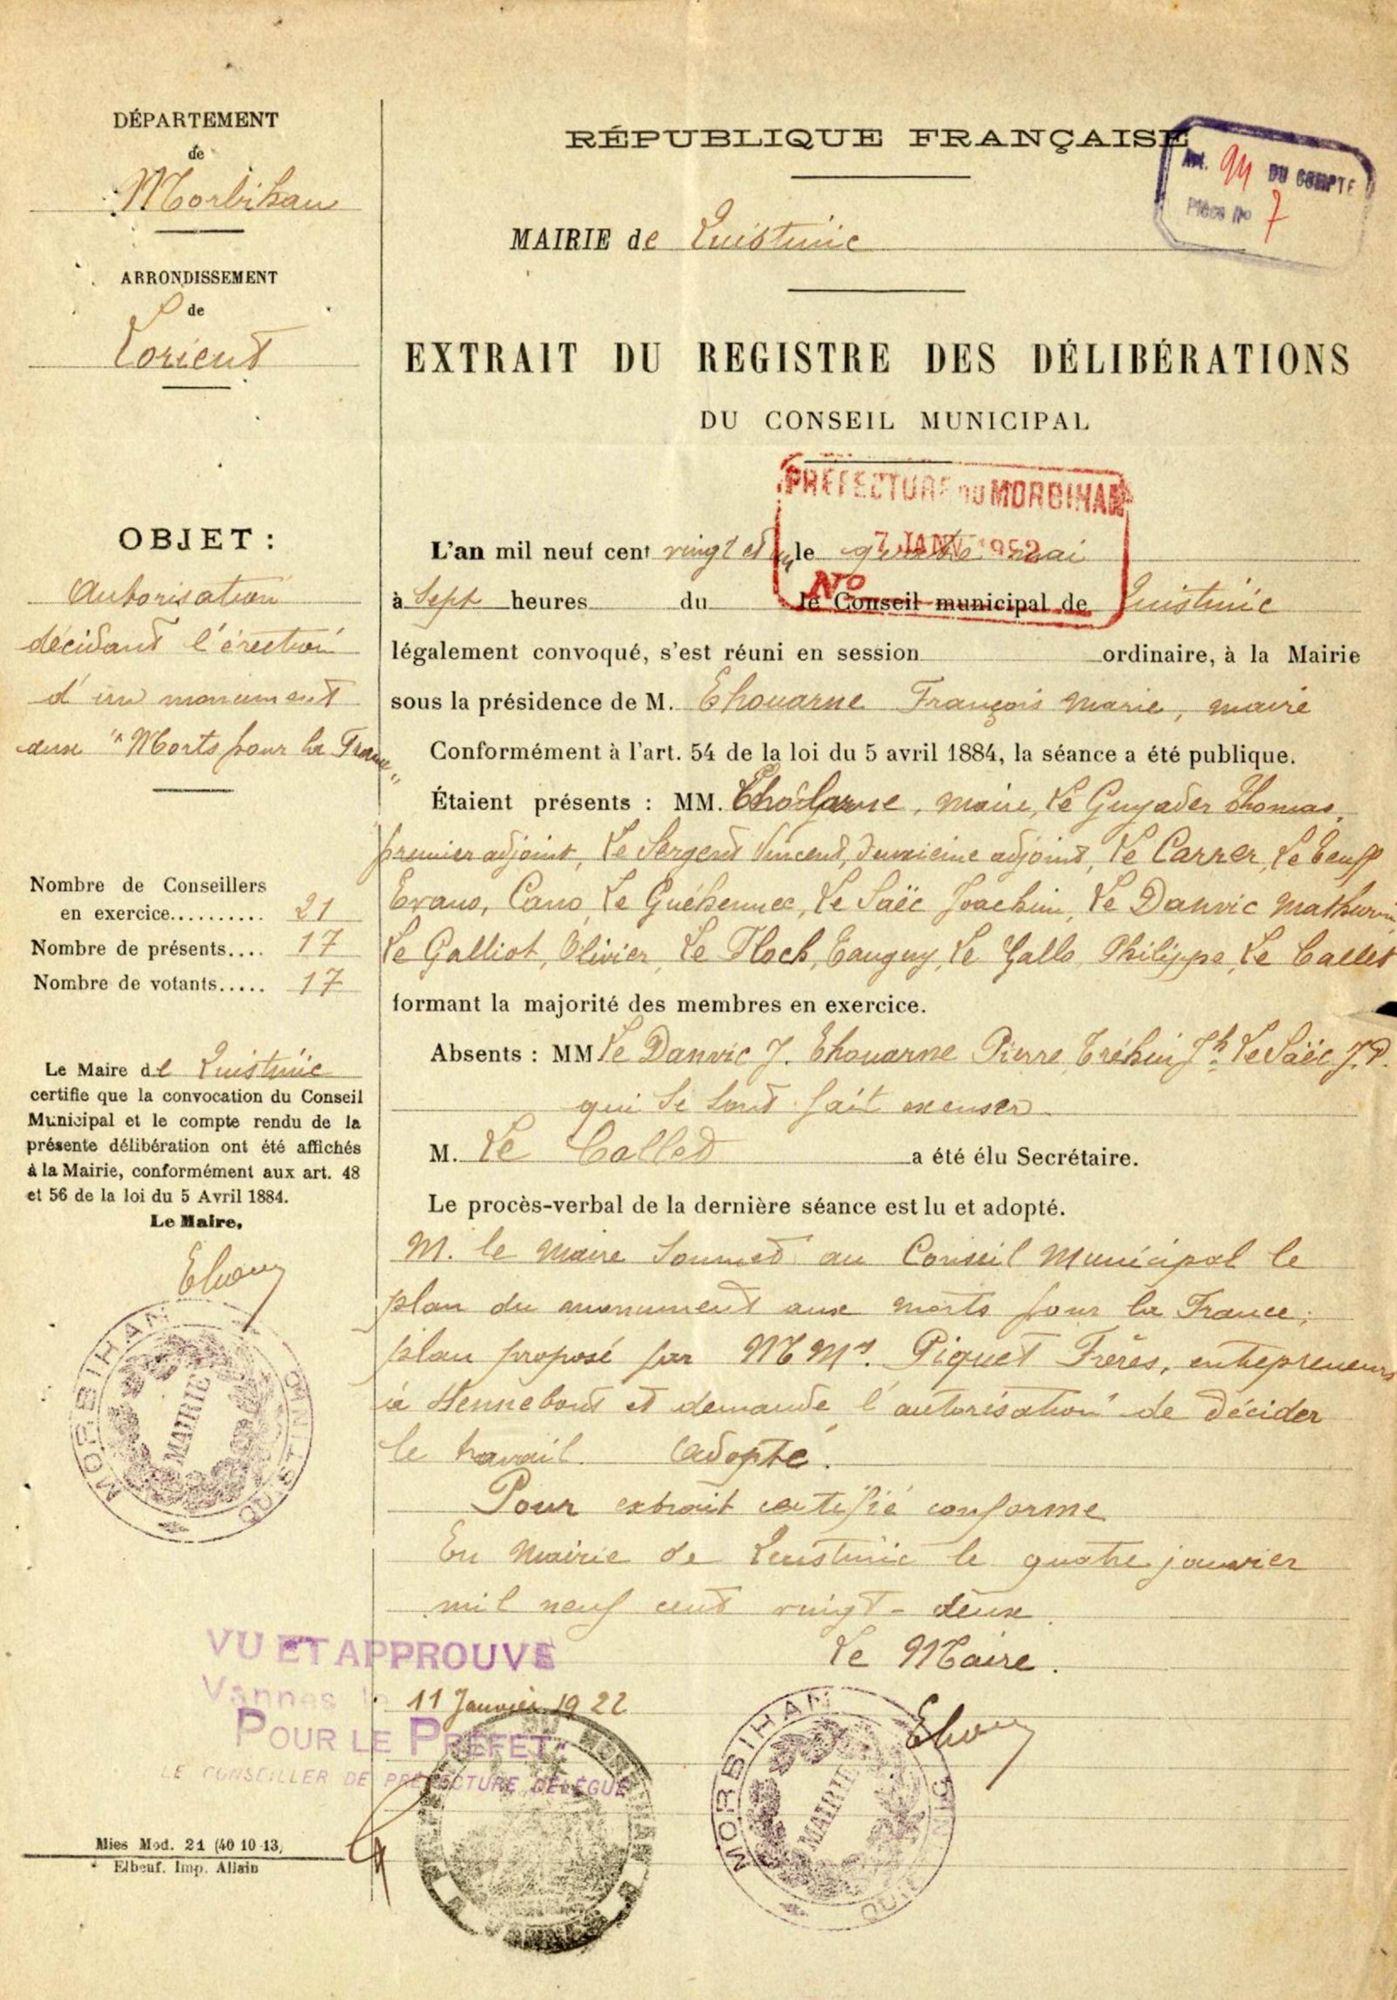 DÉPARTEMENT
de
Morbihan
ARRONDISSEMENT
de
Lorient
OBJET :
Autorisation
décidant l'érection
d'un monument
aux "Morts pour la France"
Nombre de Conseillers
en exercice.......... 21
Nombre de présents.... 17
Nombre de votants..... 17
Le Maire de Quistinic
certifie que la convocation du Conseil
Municipal et le compte rendu de la
présente délibération ont été affichés
à la Mairie, conformément aux art. 48
et 56 de la loi du 5 Avril 1884.
Le Maire,
MORBIHAN
MAIRIE
QUISTINIC
RÉPUBLIQUE FRANÇAISE
Art. 94 DU COMPTE
Pièce No 7
MAIRIE de Quistinic
EXTRAIT DU REGISTRE DES DÉLIBÉRATIONS
DU CONSEIL MUNICIPAL
PRÉFECTURE DU MORBIHAN
7 JANV
No
L'an mil neuf cent vingt et un le mai
à Sept heures du le Conseil municipal de Quistinic
légalement convoqué, s'est réuni en session ordinaire, à la Mairie
sous la présidence de M. Ehouarne François Marie, maire
Conformément à l'art. 54 de la loi du 5 avril 1884, la séance a été publique.
Étaient présents : MM. Ehouarne, maire, Le Guyader Thomas,
premier adjoint, Le Sergent Vincent, deuxième adjoint, Le Carrer,
Evano, Cano, Le Guéhennec, Le Saëc Joachim, Le Danvic Mathurin
Le Galliot, Olivier, Le Floch, Tanguy, Le Gallo Philippe, Le Callet
formant la majorité des membres en exercice.
Absents : MM Le Danvic J. Ehouarne Pierre Tréhin Jh Le Saëc J.P.
qui se sont fait excuser
M. Le Callet a été élu Secrétaire.
Le procès-verbal de la dernière séance est lu et adopté.
M. le Maire soumet au Conseil Municipal le
plan du monument aux morts pour la France;
plan proposé par MMrs. Piquet Frères, entrepreneurs
à Hennebont et demande l'autorisation de décider
le travail. Adopté.
Pour extrait certifié conforme
En Mairie de Quistinic le quatre janvier
mil neuf cent vingt-deux.
Le Maire.
MORBIHAN
MAIRIE
QUISTINIC
VU ET APPROUVÉ
Vannes le 11 Janvier 1922
POUR LE PRÉFET
LE CONSEILLER DE PRÉFECTURE DÉLÉGUÉ
Mies Mod. 21 (40 10-13)
Elbeuf. Imp. Allain